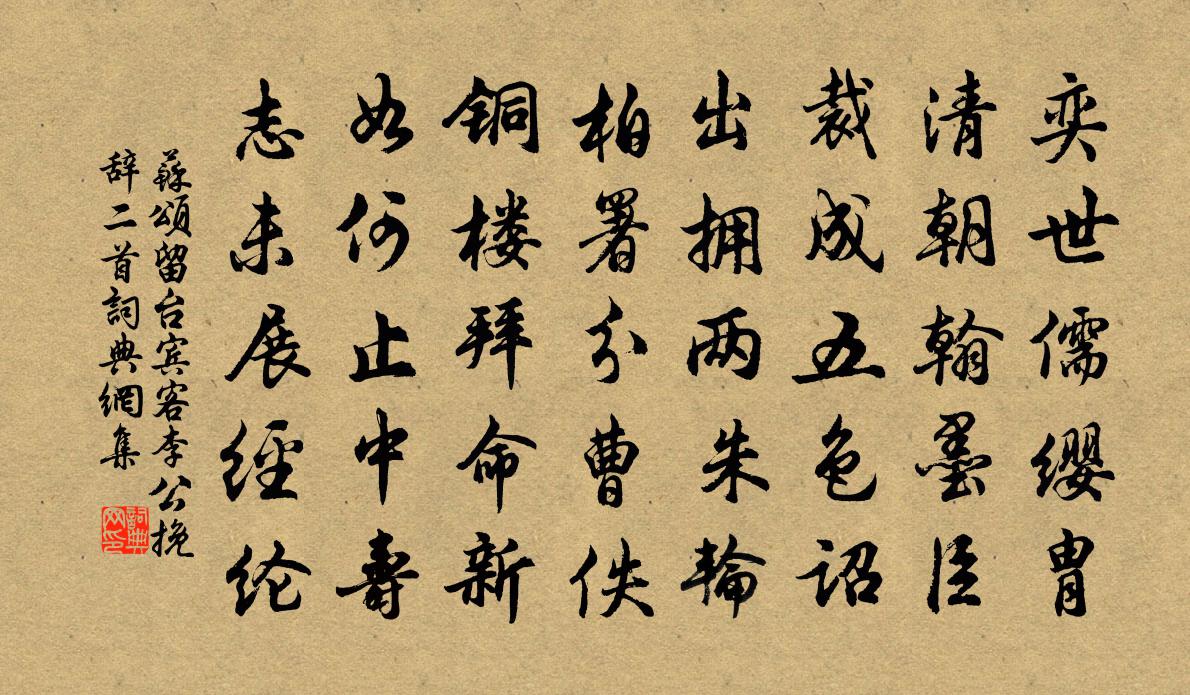 奕世儒缨胄
清朝翰墨臣
裁成五色诏
出拥两朱輪
柏署分曹佚
铜楼拜命新
如何止中壽
志未展經纶
蘇頌留台宾客李公挽
辞二首詞典網集
詞典網印